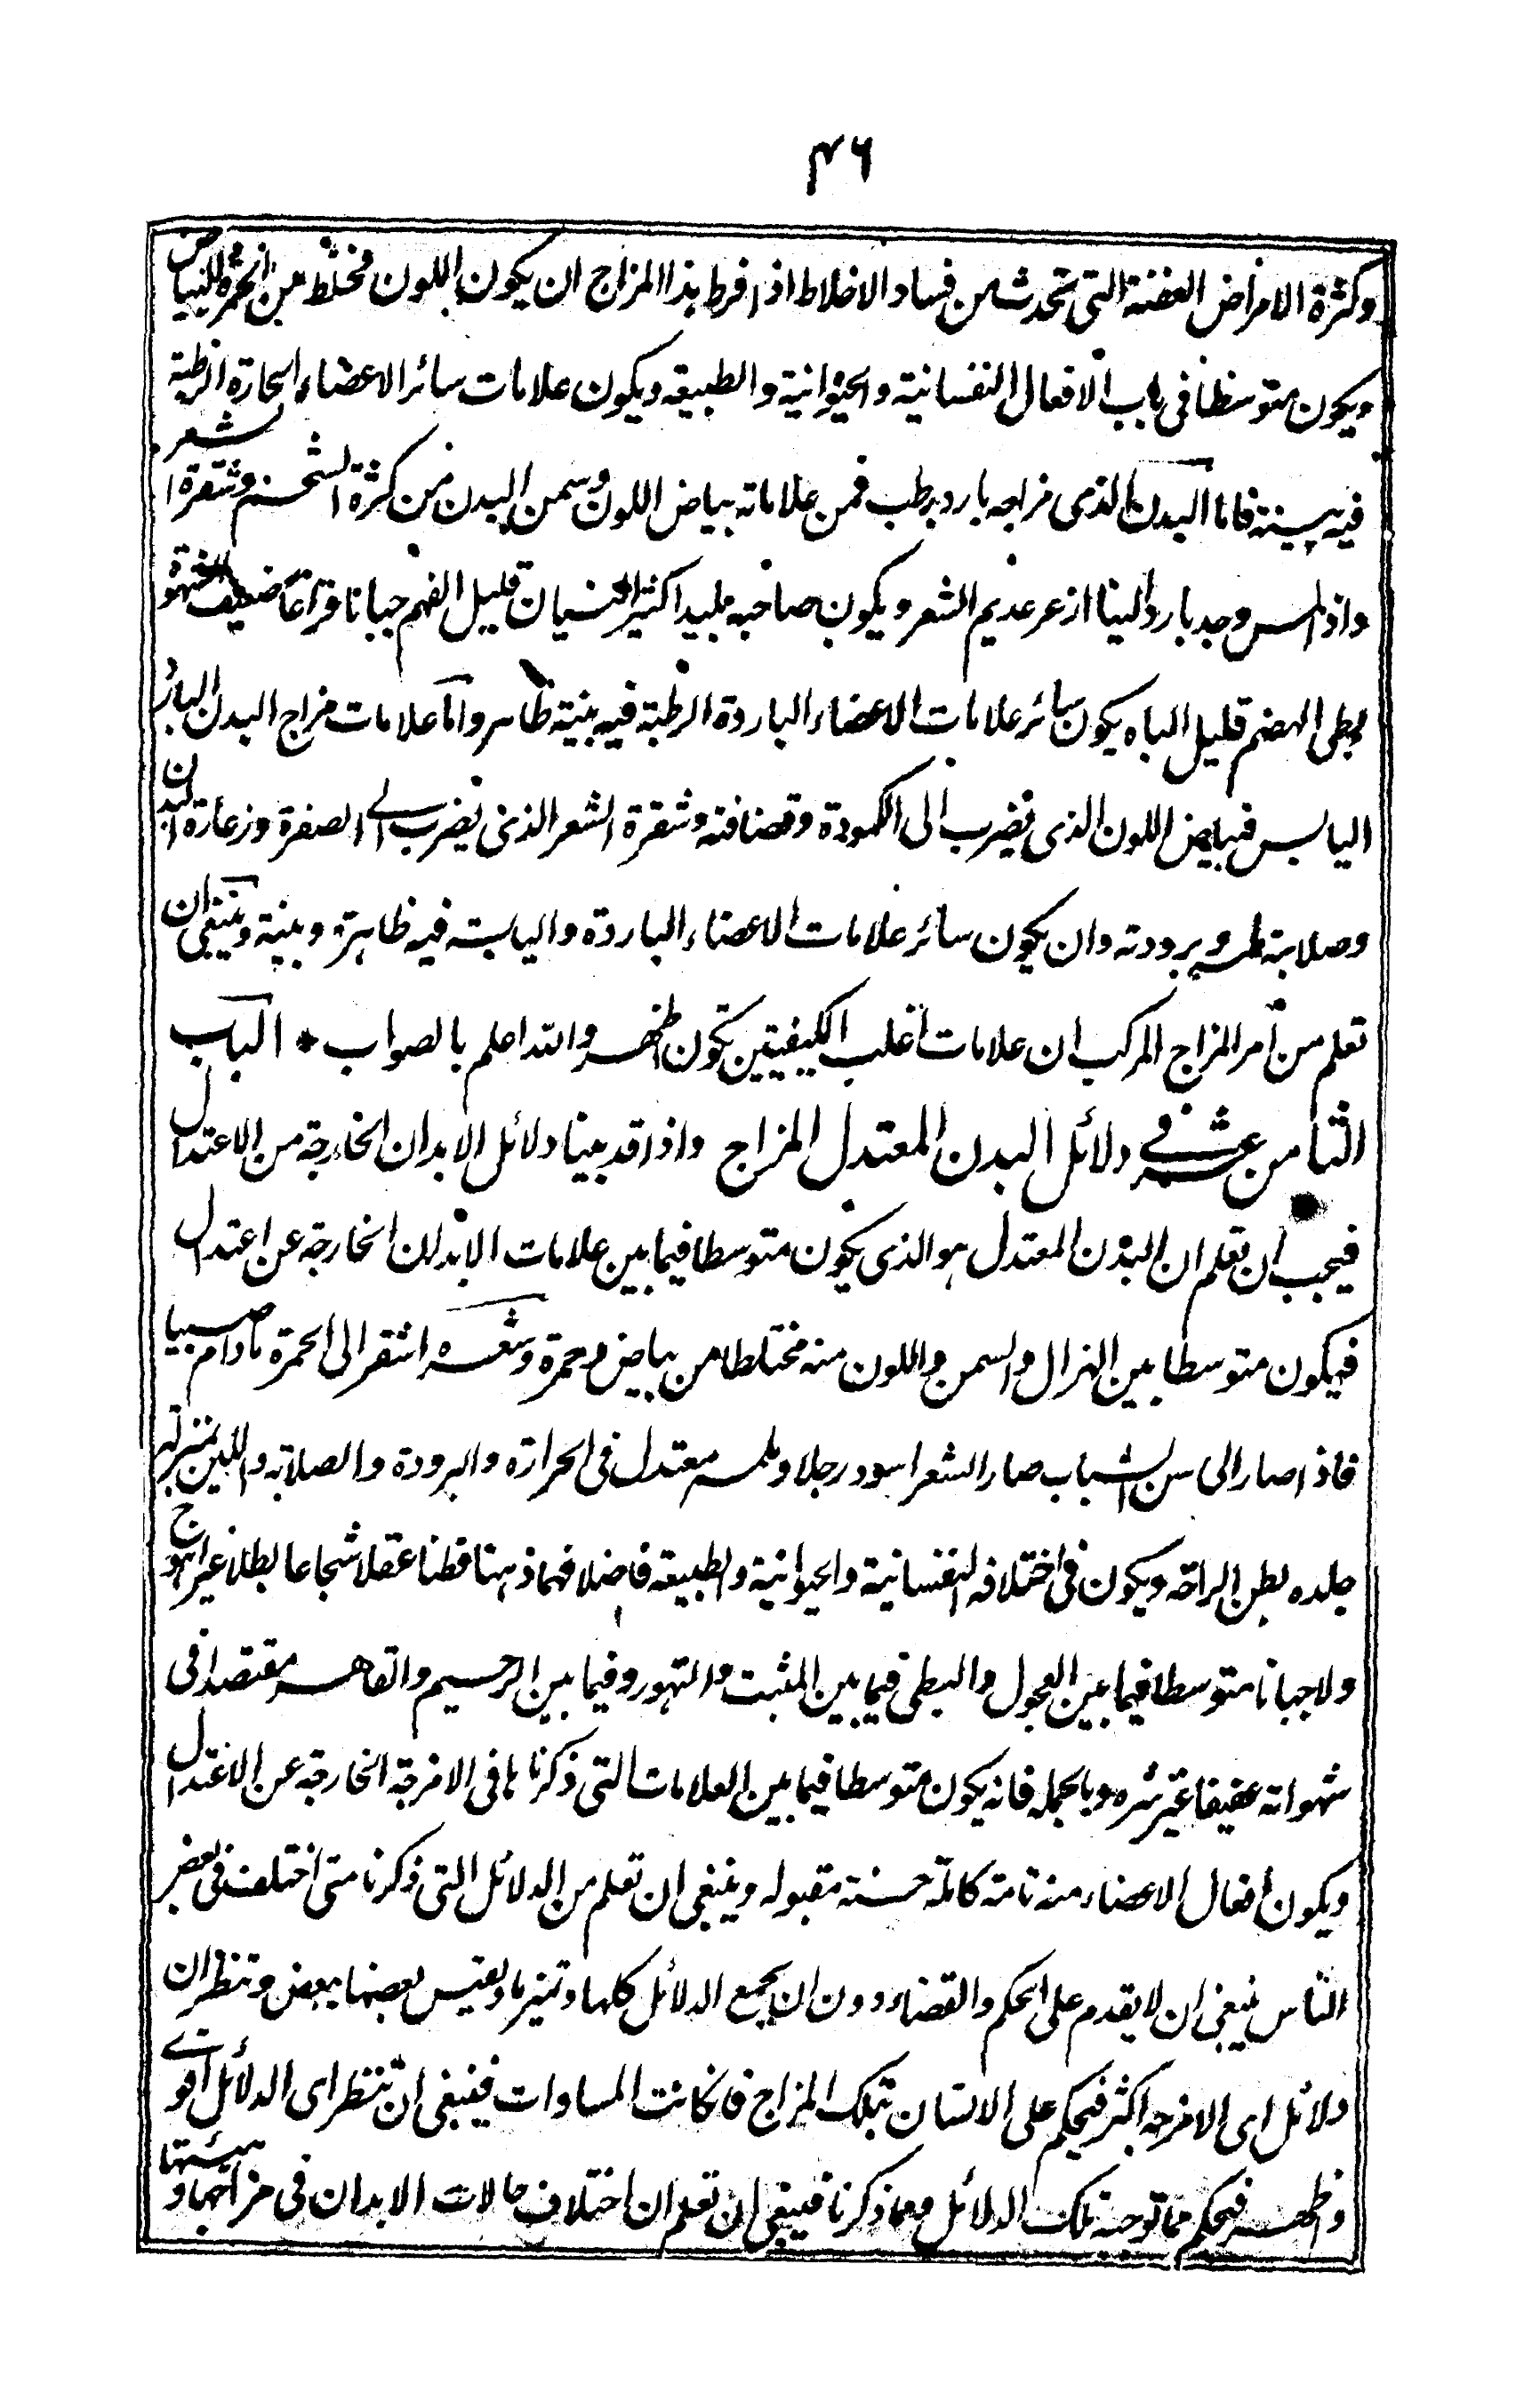 ٤٦
وكثرة الامراض العفنة التى تحدث من فساد الاخلاط اذا افرط هذا المزاج ان يكون اللون مختلط من الحمرة البياض
ويكون متوسطا فى باب الافعال النفسانية والحيوانية والطبيعه ويكون علامات سائر الاعضاء الحارة الرطبة
فيه بينة فاما البدن الذى مزاجه بارد رطب فمن علاماته بياض اللون وسمن البدن من كثرة الشحم وشقرة الشعر
واذا لمس وجد باردا لينا ازعر عديم الشعر ويكون صاحبه بليدا كثير النسيان قليل الفهم جبانا فزاعا ضعيف الشهوة
بطى الهضم قليل الباه يكون سائر علامات الاعضاء الباردة الرطبة فيه بينة ظاهر واما علامات مزاج البدن البارد
اليابس فبياض اللون الذى يضرب الى الكمودة وقضافته وشقرة الشعر الذى يضرب الى الصفرة وزعارة البدن
وصلابة ملمسه وبرودته وان يكون سائر علامات الاعضاء الباردة واليابسة فيه ظاهرة وبينة وينبغى ان
تعلم من امر المزاج المركب ان علامات اغلب الكيفيتين تكون اظهر والله اعلم بالصواب * الباب
الثامن عشر فى دلائل البدن المعتدل المزاج واذا قد بينا دلائل الابدان الخارجة من الاعتدال
فيجب ان تعلم ان البدن المعتدل هو الذى يكون متوسطا فيما بين علامات الابدان الخارجة عن اعتدال
فيكون متوسطا بين الهزال والسمن واللون منه مختلطا من بياض وحمرة وشعره اشقر الى الحمرة مادام صبيا
فاذا صار الى سن الشباب صار الشعر اسود رجلا وملمسه معتدل فى الحرارة والبرودة والصلابه واللين بمنزلة
جلده بطن الراحة ويكون فى اختلافه النفسانية والحيوانية والطبيعه فاضلا فهما ذهنا فطنا عقلا شجاعا بطلا غير اهوج
ولا جبانا متوسطا فيما بين العجول والبطى فيما بين المثبت والتهور وفيما بين الرحيم والقاهر مقتصدا فى
شهواته عفيفا غير شره وبالجمله فانه يكون متوسطا فيما بين العلامات التى ذكرناها فى الامزجة الخارجة عن الاعتدال
ويكون افعال الاعضاء منه تامة كاملة حسنة مقبوله وينبغى ان تعلم من الدلائل التى ذكرنا متى اختلف فى بعض
الناس ينبغى ان لا يقدم على الحكم والقضاء دون ان يجمع الدلائل كلها وتميزها ويقيس بعضها ببعض وتنظر ان
دلائل اى الامزجه اكثر فيحكم على الانسان بتلك المزاج فانكانت المساوات فينبغى ان تنظر اى الدلائل اقوى
واظهر فيحكم بما توجبه تلك الدلائل ومما ذكرنا فينبغى ان تعلم ان اختلاف حالات الابدان فى مزاجها وهيئتها